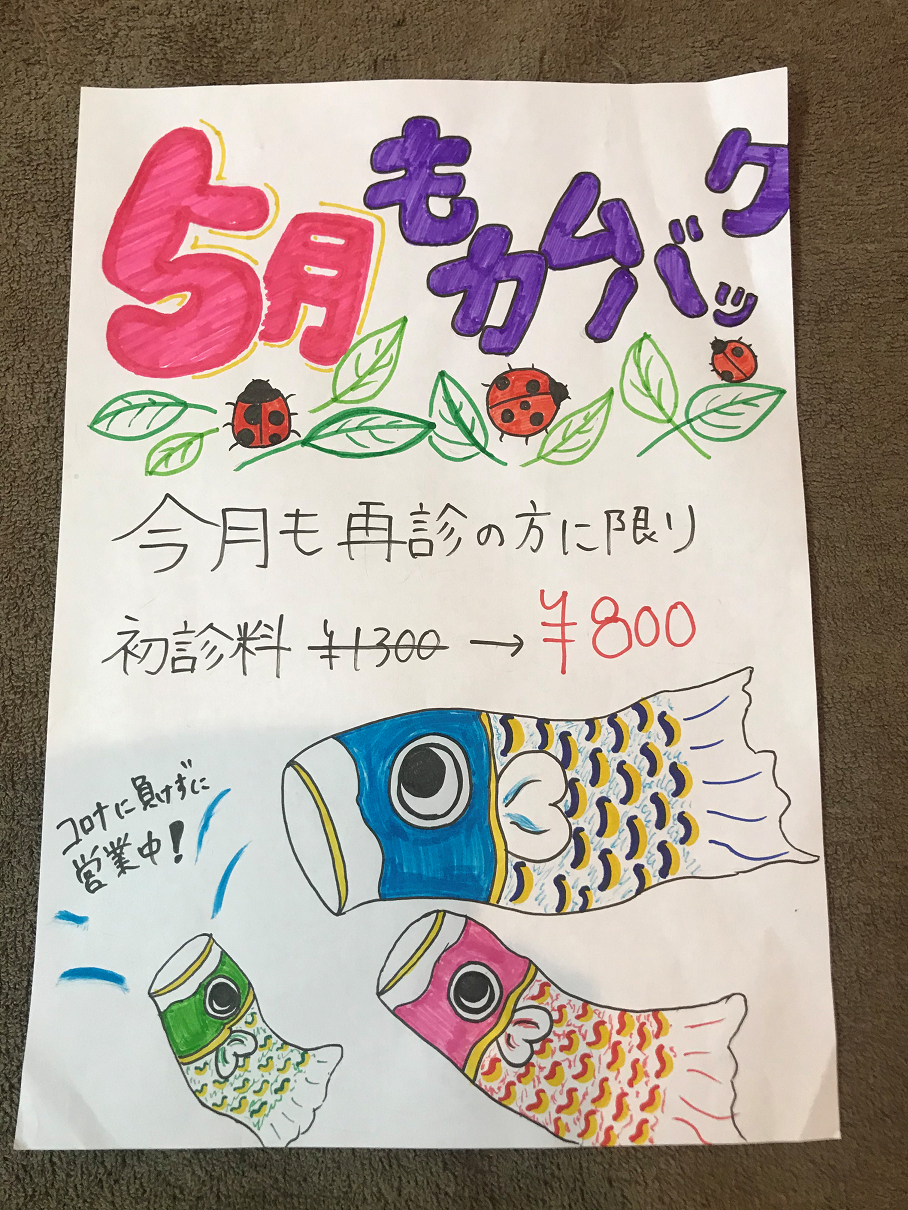 5月もカムバック
今月も再診の方に限り
初診料 ¥1300 → ¥800
コロナに負けずに
営業中!